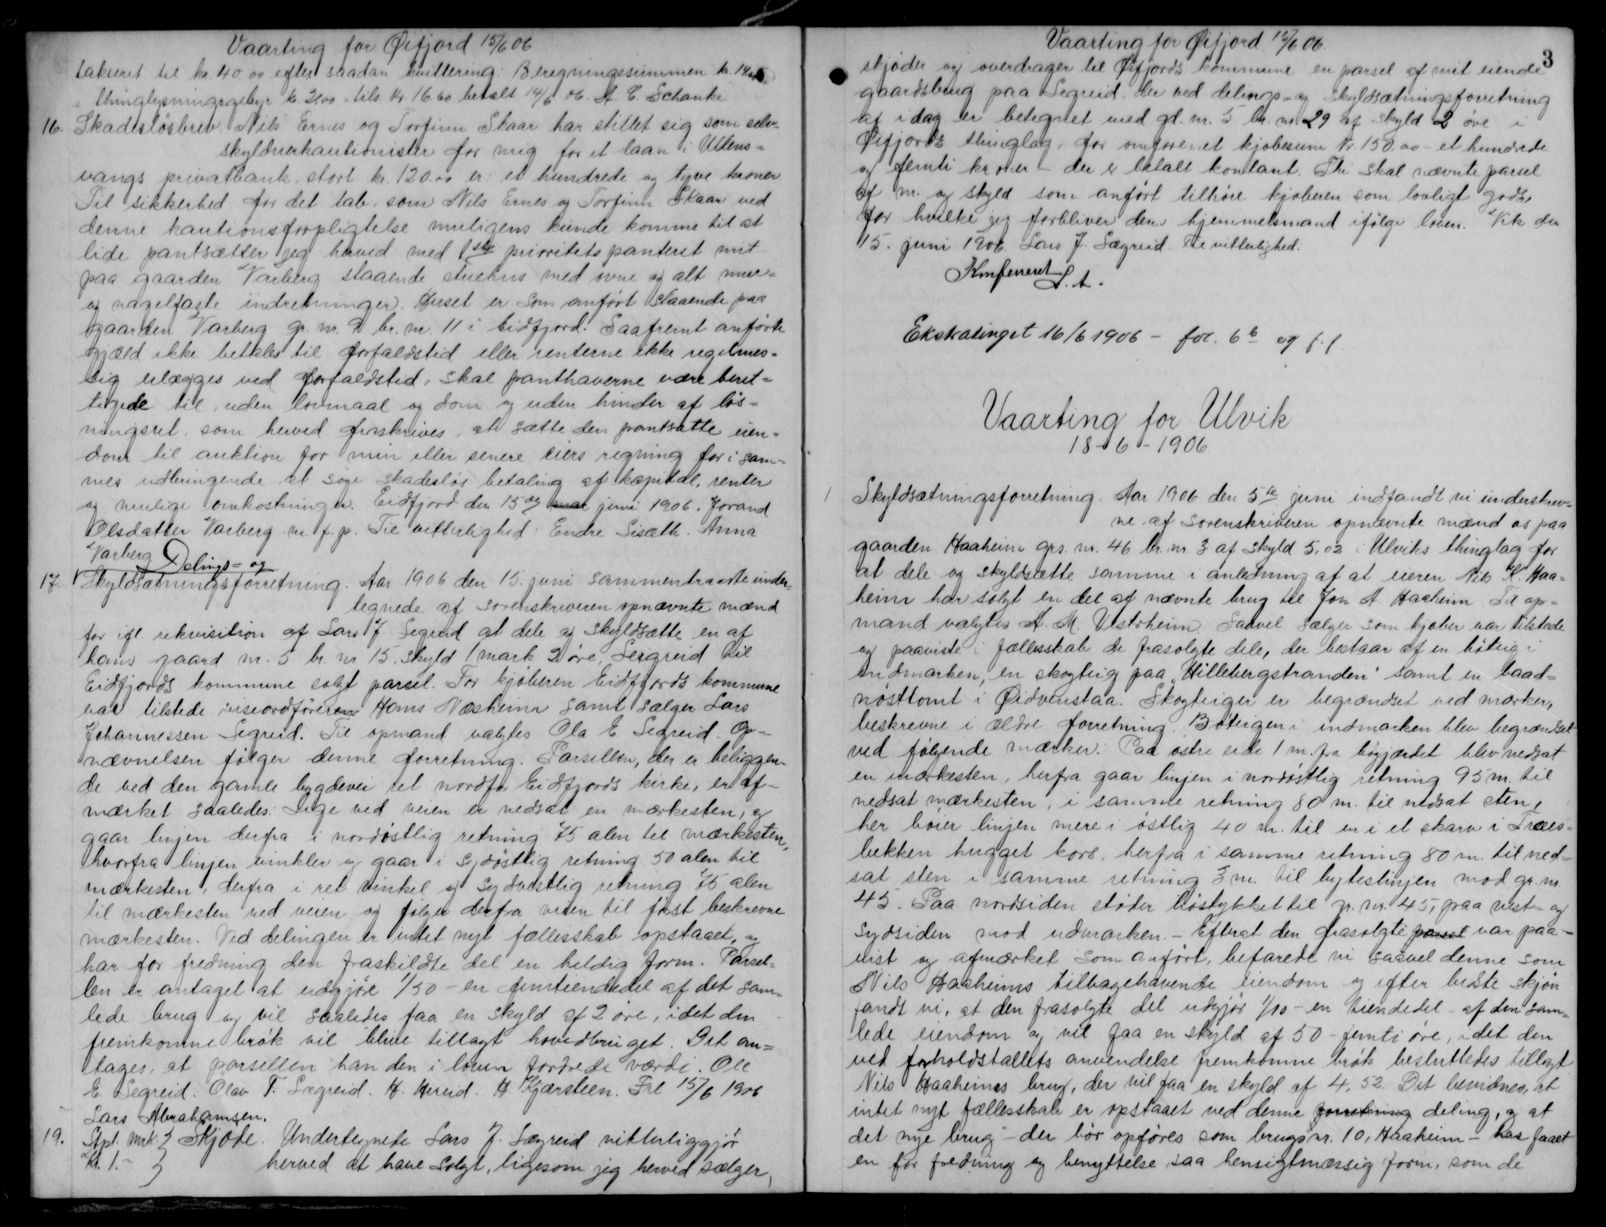 Vaarting for Øifjord 15/6 06
takseret til kr. 40.00 efter saadan kvittering: Beregningssummen kr. 14.00
Thinglysningsgebyr kr. 2.00 - tils. kr 16.00 betalt 14/6 06. A. C Schanke
16. Skadesløsbrev. Nils Ernes og Torfinn Skaar har stillet sig som selv-
skyldnerkautionister for mig for et laan i Ullens-
vangs privatbank stort kr. 120.00 er et hundrede og tyve kroner
Til sikkerhed for det tab, som Nils Ernes og Torfinn Skaar ved
denne kautionsforpligtelse muligens kunde komme til at
lide pantsætter jeg herved med 1ste prioritets panteret mit
paa gaarden Varberg staaende stuehus med ovne og alt mur-
og nagelfaste indretninger. Huset er som anført staaende paa
gaarden Varberg gr. nr. 2 br. nr. 11 i Eidfjord. Saafremt anførte
gjæld ikke betales til forfaldstid eller renterne ikke regelmes-
sig erlægges ved forfaldstid, skal panthaverne være beret-
tigede til, uden lovmaal og dom og uden hinder af løs-
ningsret som herved fraskrives, at sætte den pantsatte eien-
dom til auktion for min eller senere eiers regning for i sam-
mes udbringende at søge skadesløs betaling af kapital, renter
og mulige omkostninger. Eidfjord den 15de mai juni 1906. Jorand
Olsdatter Varberg m. f. p. Til vitterlighed: Endre Lisæth. Anna
Varberg
Delings- og
17. Skyldsætningsforretning. Aar 1906 den 15. juni sammentraadte under-
tegnede af sorenskriveren opnævnte mænd
for ifl. rekvisition af Lars J. Segreid at dele og skyldsætte en af
hans gaard nr. 5 br. nr 15, skyld 1 mark 2 øre, Segreid til
Eidfjords kommune solgt parsel. For kjøberen Eidfjords kommune
var tilstede viseordføreren Hans Næsheim samt sælger Lars
Johannessen Segreid. Til opmand valgtes Ola E. Segreid. Op-
nævnelsen følger denne forretning. Parsellen, der er beliggen-
de ved den gamle bygdevei ret nordfor Eidfjords kirke, er af-
mærket saaledes: Lige ved veien er nedsat en mærkesten, og
gaar linjen derfra i nordøstlig retning 75 alen til mærkesten,
hvorfra linjen vinkler og gaar i sydøstlig retning 50 alen til
mærkesten, derfra i ret vinkel og sydvestlig retning 75 alen
til mærkesten ved veien og følger derfra veien til først beskrevne
mærkesten. Ved delingen er intet nyt fællesskab opstaaet, og
har for fredning den fraskildte del en heldig form. Parsel-
len er antaget at udgjøre 1/50 - en femtiendedel af det sam-
lede brug og vil saaledes faa en skyld af 2 øre, idet den
fremkomne brøk vil blive tillagt hovedbruget. Det an-
tages, at parsellen han den i loven fordrede værdi. Ole
E. Segreid. Olav T. Sægreid. H. Hereid. H Kjærsteen. Frl 15/6 1906
Lars Abrahamsen.
19. Stpl. mrk. Skjøte. Undertegnete Lars J. Sægreid vitterliggjør
kr. 1.- herved at have solgt, ligesom jeg herved sælger,
Vaarting for Øifjord 15/6 06.
3
skjøder og overdrager til Øifjords kommune en parsel af mit eiende
gaardsbrug paa Segreid, der ved delings- og skyldsætningsforretning
af idag er betegnet med gd. nr. 5 br. nr. 29 af skyld 2 øre i
Øifjords thinglag, for omforenet kjøbesum kr 150.00 - et hundrede
og femti kroner - der er betalt kontant. Thi skal nævnte parsel
af nr. og skyld som anført tilhøre kjøberen som lovligt gods,
for hvilket jeg forbliver dens hjemmelsmand ifølge loven. Vik den
15. juni 1906. Lars J. Sægreid. Til vitterlighed.
Konfereret L. A.
Ekstratinget 16/6 1906 - for. 6b og f.f.
Vaarting for Ulvik
18 - 6 - 1906
1 Skyldsætningsforretning. Aar 1906 den 5te juni indfandt vi underskrev-
ne af sorenskriveren opnævnte mænd os paa
gaarden Haaheim grs. nr. 46 br. nr. 3 af skyld 5.02 i Ulviks thinglag for
at dele og skyldsætte samme i anledning af at eieren Nils K. Haa-
heim har solgt en del af nævnte brug til Jon A Haaheim. Til op-
mand valgtes A. M. Vestrheim Saavel sælger som kjøber var tilstede
og paaviste i fællesskab de frasolgte dele, der bestaar af en bøteig i
indmarken, en skogteig paa "Hillebergstranden" samt en baad-
nøsttomt i Øidvenstaa. Skogteiger er begrændset ved mærker,
beskrevne i ældre forretning. Bøteigen i indmarken blev begrændset
ved følgende mærker: Paa østre side 1 m. fra bøgjærdet blev nedsat
en mærkesten, herfra gaar linjen i nordøstlig retning 95 m. til
nedsat mærkesten, i samme retning 80 m. til nedsat sten,
her bøier linjen mere i østlig 40 m. til en i et skarv i Træes-
bekken hugget kors, herfra i samme retning 80 m. til ned-
sat sten i samme retning 3 m. til bytestlinjen mod gr. nr
45. Paa nordsiden støder bøstykket til gr. nr. 45, paa vest- og
sydsiden mod udmarken. - Efterat den frasolgte parsel var paa-
vist og afmærket som anført, befarede vi saavel denne som
Nils Haaheims tilbagehavende eiendom og efter bedste skjøn
fandt vi, at den frasolgte del udgjør 1/10 - en tiendedel - af den sam-
lede eiendom og vil faa en skyld af 50 - femti øre, idet den
ved forholdstallets anvendelse fremkomne brøk besluttedes tillagt
Nils Haaheims brug, der vil faa en skyld af 4,52. Det bevidnes, at
intet nyt fællesskab er opstaaet ved denne forretning deling, og at
det nye brug - der bør opføres som brugsnr. 10, Haaheim - har faaet
en for fredning og benyttelse saa hensigtmæssig form, som de